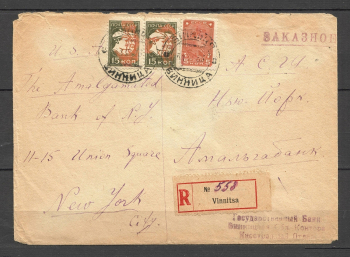 ЗАКАЗНОЕ
15 КОП.
15 КОП.
ВИННИЦА
ВИННИЦА
U. S. A.
The Amalgamated
Bank of N.Y.
11-15 Union Square
New York
City.
А С Ш
Нью Йорк
Амальгабанк
R
№ 558
Vinnitsa
Государственный Банк